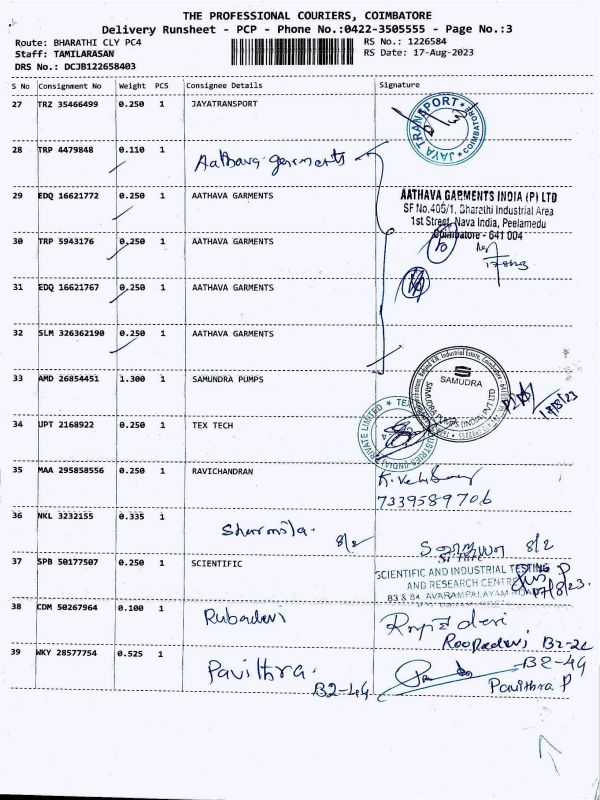 THE PROFESSIONAL COURIERS, COIMBATORE
Delivery Runsheet - PCP - Phone No.:0422-3505555 - Page No.:3
Route: BHARATHI CLY PC4
RS No.: 1226584
Staff: TAMILARASAN
RS Date: 17-Aug-2023
DRS No.: DCJB122658403
S No Consignment No Weight PCS Consignee Details Signature
27 TRZ 35466499 0.250 1 JAYATRANSPORT
JAYA TRANSPORT COIMBATORE
28 TRP 4479848 0.110 1 Aathava garments
29 EDQ 16621772 0.250 1 AATHAVA GARMENTS
AATHAVA GARMENTS INDIA (P) LTD
SF No.405/1, Bharathi Industrial Area
1st Street, Nava India, Peelamedu
Coimbatore - 641 004
30 TRP 5943176 0.250 1 AATHAVA GARMENTS
31 EDQ 16621767 0.250 1 AATHAVA GARMENTS
32 SLM 326362190 0.250 1 AATHAVA GARMENTS
33 AMD 26854451 1.300 1 SAMUNDRA PUMPS
SAMUDRA
SAMUDRA PUMPS (INDIA) PVT LTD
17/8/23
34 UPT 2168922 0.250 1 TEX TECH
35 MAA 295858556 0.250 1 RAVICHANDRAN
7339589706
36 NKL 3232155 0.335 1 Sharmila. 8/2
8/2
37 SPB 50177507 0.250 1 SCIENTIFIC
SCIENTIFIC AND INDUSTRIAL TESTING
AND RESEARCH CENTRE
83 & 84, AVARAMPALAYAM ROAD
17/8/23.
38 CDM 50267964 0.100 1 Rubadevi
Roopadevi B2-2C
39 WKY 28577754 0.525 1 Pavithra.
B2-4G
B2-4G
Pavithra P